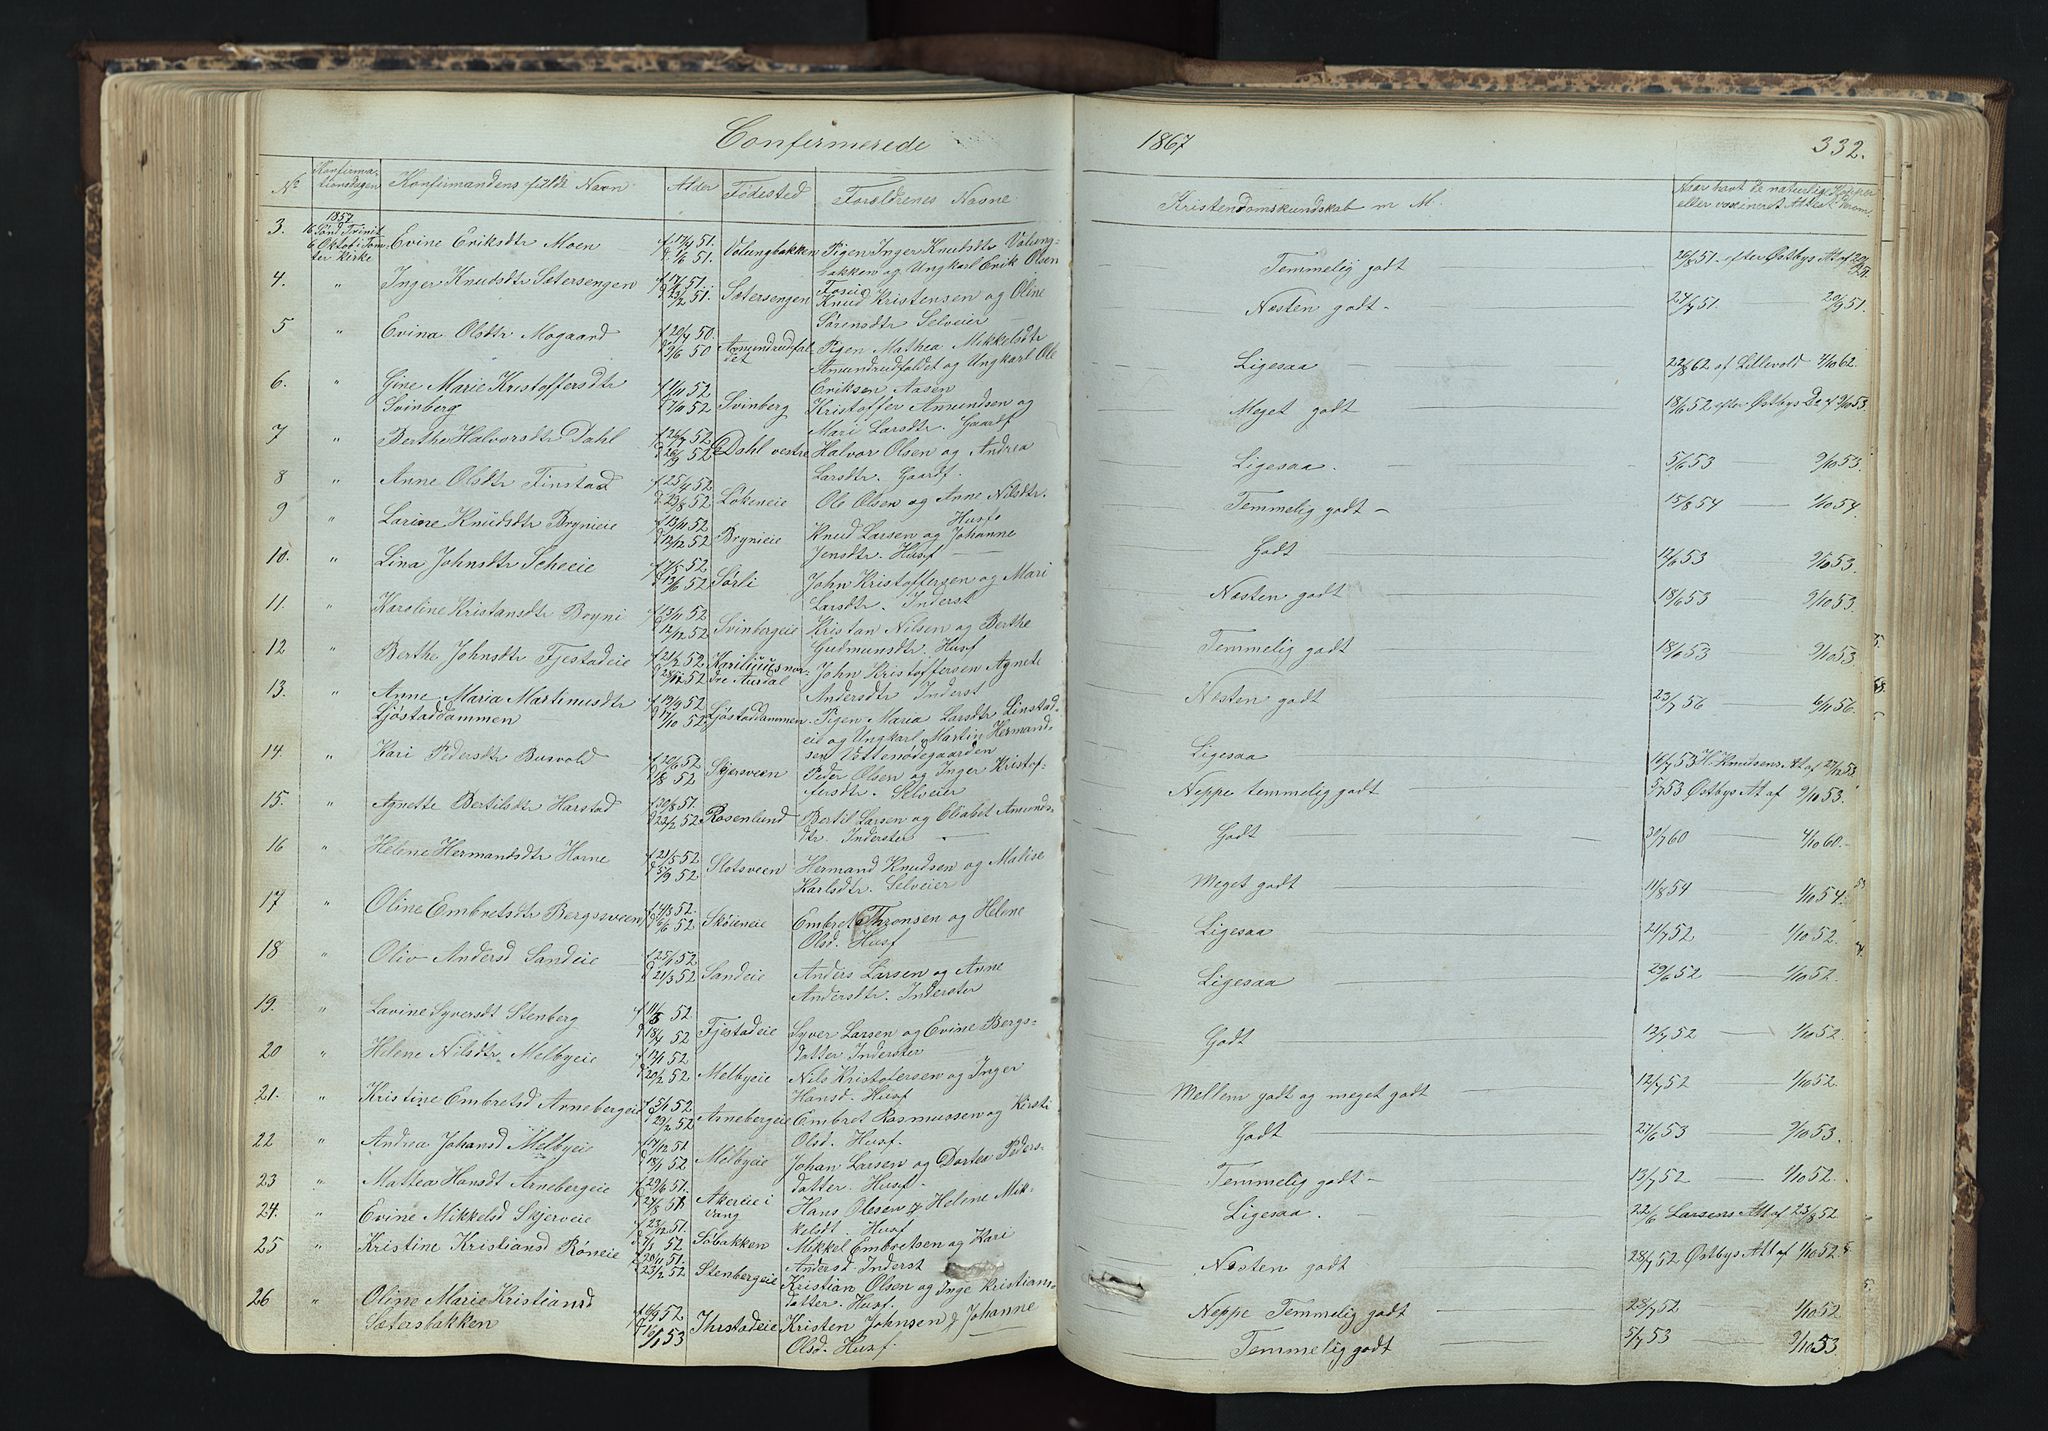 Confirmerede 1867 332.
No Konfirma-tionsdagen Konfirmandens fulde Navn Alder Fødested Forældrenes Navne Kristendomskundskab m M. Naar havt de naturlige Kopper eller vaxineret Attest derom
3. 16 Sønd Trinit 6 Oktob i Tom-ter Kirke Evine Eriksdtr Moen f 17/4 51. d 1/6 51. Volungbakken Pigen Inger Knudsdtr Volung-
bakken og Ungkarl Erik Olsen
Foseie Temmelig godt 20/8 51. efter Østbys At af
4. " Inger Knudsdtr Sætersengen Sætersengen Knud Kristensen og Oline
Sørensdtr Selveier Næsten godt - 24/7 51. 20/9 51.
5 " Evina Olsdtr Mogaard f 20/4 50. d 9/6 50 Amundrudfal-det Pigen Mathea Mikkelsdtr
Amundrudfaldet og Ungkarl Ole
Eriksen Aasen Ligesaa 22/8 62 af Lillevold 4/10 62.
6. " Gine Marie Kristoffersdtr
Svinberg f 1/11 52 d 17/10 52 Svinberg Kristoffer Amundsen og
Mari Larsdtr. Gaardf Meget godt 18/6 52 efter Østbys De af 9/10 53.
7 " Berthe Halvorsdtr Dahl f 26/7 52 d 26/9 52 Dahl vestre Halvor Olsen og Andrea
Larsdtr. Gaardf. Ligesaa. 5/6 53 9/10 53.
8 " Anne Olsdtr Finstad f 25/4 52 d 29/8 52 Løkeneie Ole Olsen og Anne Nilsdtr.
Husf. Temmelig godt - 15/8 54 1/10 54.
9 " Larine Knudsdtr Brynieie f 13/11 52 d 12/12 52 Brynieie Knud Larsen og Johanne
Jensdtr. Husf Godt 12/6 53 9/10 53.
10. " Lina Johnsdtr Scheeie f 7/5 52 d 13/6 52 Sørli John Kristoffersen og Mari
Larsdtr. Inderst Næsten godt 18/6 53 9/10 53.
11. " Karoline Kristansdtr Bryni f 13/11 52 d 12/12 52 Svinbergeie Kristan Nilsen og Berthe
Gudmunsdtr. Husf Temmelig godt 18/6 53 9/10 53
12 " Berthe Johnsdtr Fjestadeie f 21/2 52 nor-dre Aurdal John Kristoffersen Agnete
Andersdtr Inderst Næsten godt 23/7 56 6/11 56.
13. " Anne Maria Martinusdtr
Ljøstaddammen f 19/9 52 d 17/10 52 Ljøstaddammen Pigen Maria Larsdtr Linstad-
eie og Ungkarl Martin Hermand-
sen Vottenødegaarden Ligesaa 16/7 53 H. Knudsens At af 27/12 53
14 " Kari Pedersdtr Busvold f 20/6 52 d 1/8 52 Skjersveen Peder Olsen og Inger Kristof-
fersdtr. Selveier Neppe temmelig godt 5/7 53 Østbys At af 9/10 53.
15. " Agnette Bertilsdtr Harstad f 30/8 51. d 22/2 52 Rosenlund Bertil Larsen og Olisabet Amunds-
dtr. Inderster Godt 20/7 60 4/10 60.
16 " Helene Hermandsdtr Horne f 21/5 52 d 5/9 52 Slotsveen Hermand Knudsen og Malise
Karlsdtr. Selveier Meget godt 11/8 54 1/10 54.
17 " Oline Embretsdtr Bergsveen f 14/3 52. d 6/6 52 Skøieneie Embret Thronsen og Helene
Olsd. Husf Ligesaa 21/7 52 1/10 52.
18 " Oliv Andersd Sandeie f 25/1 52 d 21/3 52 Sandeie Anders Larsen og Anne
Andersdtr. Inderster Ligesaa 29/6 52 1/10 52.
19. " Lavine Syversdt Stenberg d 18/4 52 Fjestadeie Syver Larsen og Evine Bergs-
datter Inderster Godt 12/7 52 1/10 52.
20 " Helene Nilsdtr Melbyeie f 13/1 52 d 20/2 52 Melbyeie Nils Kristofersen og Inger
Hansd. Husf Mellem godt og meget godt 12/7 52 1/10 52.
21. " Kristine Embretsd Arnebergeie f 5/1 52 d 29/2 52 Arnebergeie Embret Rasmussen og Kirsti
Olsd. Husf. Godt 27/6 53 9/10 53.
22 " Andrea Johansd Melbyei f 7/12 51 d 18/1 52 Melbyeie Johan Larsen og Dortea Peders-
datter. Husf. Temmelig godt 13/7 52 1/10 52.
23 " Mattea Hansdt Arnebergeie f 29/6 51. d 24/8 51 Akereie i
Vang Hans Olesen og Helene Mik-
kelsdt. Husf Ligesaa. 22/6 Larsens At af 23/8 52
24. " Evine Mikkelsd Skjerveie f 23/12 51. Søbakken Mikkel Embretsen og Kari
Andersd Inderst Næsten godt 28/7 52 Østbys Att af 1/10 52
25 " Kristine Kristiansd Røneie f 20/11 51. d 23/2 52 Stenbergeie Kristian Olsen og Inge Kristians-
datter. Husf. Neppe Temmelig godt 28/7 52 1/10 52
26 " Oline Marie Kristiansd
Sætersbakken f 16/9 52 d 16/1 53 Ihrstadeie Kristen Johnsen & Johanne
Olsd. Husf. Temmelig godt 5/7 53 9/10 53.